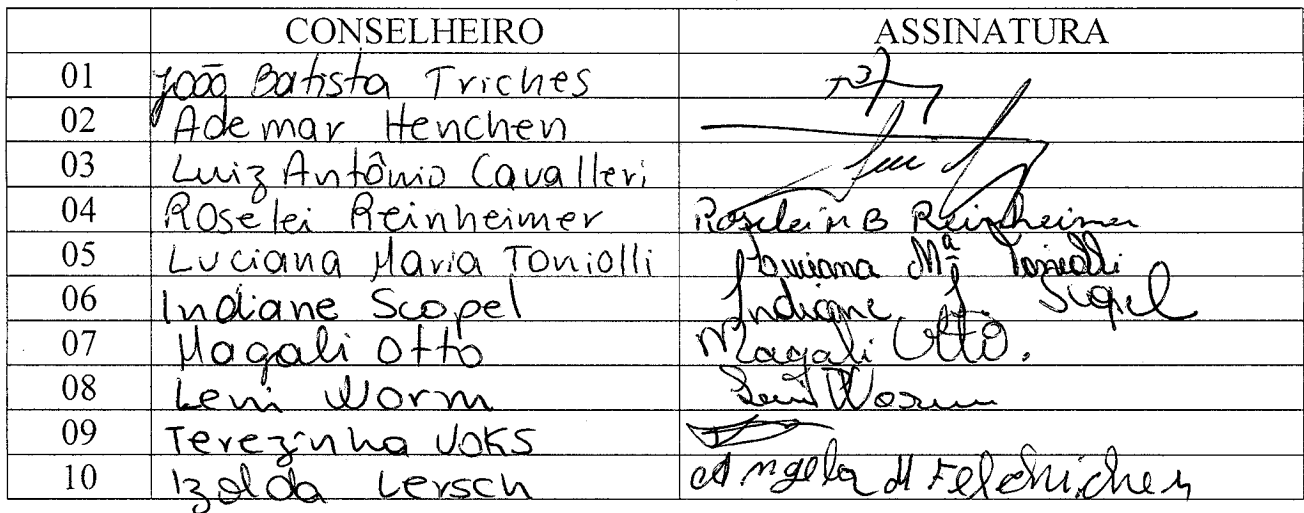 CONSELHEIRO ASSINATURA
01 João Batista Triches
02 Ademar Henchen
03 Luiz Antônio Cavalleri
04 Roselei Reinheimer Roselei M B Reinheimer
05 Luciana Maria Toniolli Luciana Mª Toniolli
06 Indiane Scopel Indiane
07 Magali Otto Magali Otto.
08 Leni Worm Leni Worm
09 Terezinha Voks
10 Izolda Lersch Angela M